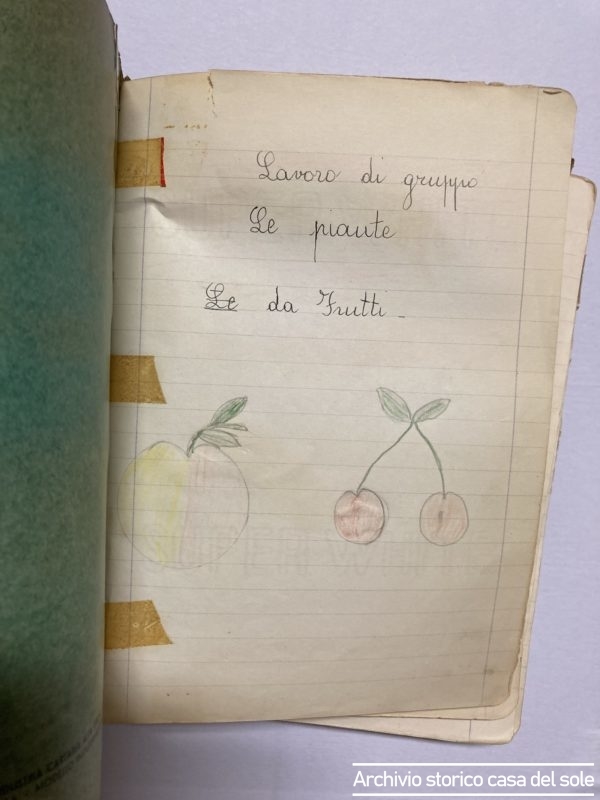 Lavoro di gruppo
Le piante
Le da Frutti -
Archivio storico casa del sole